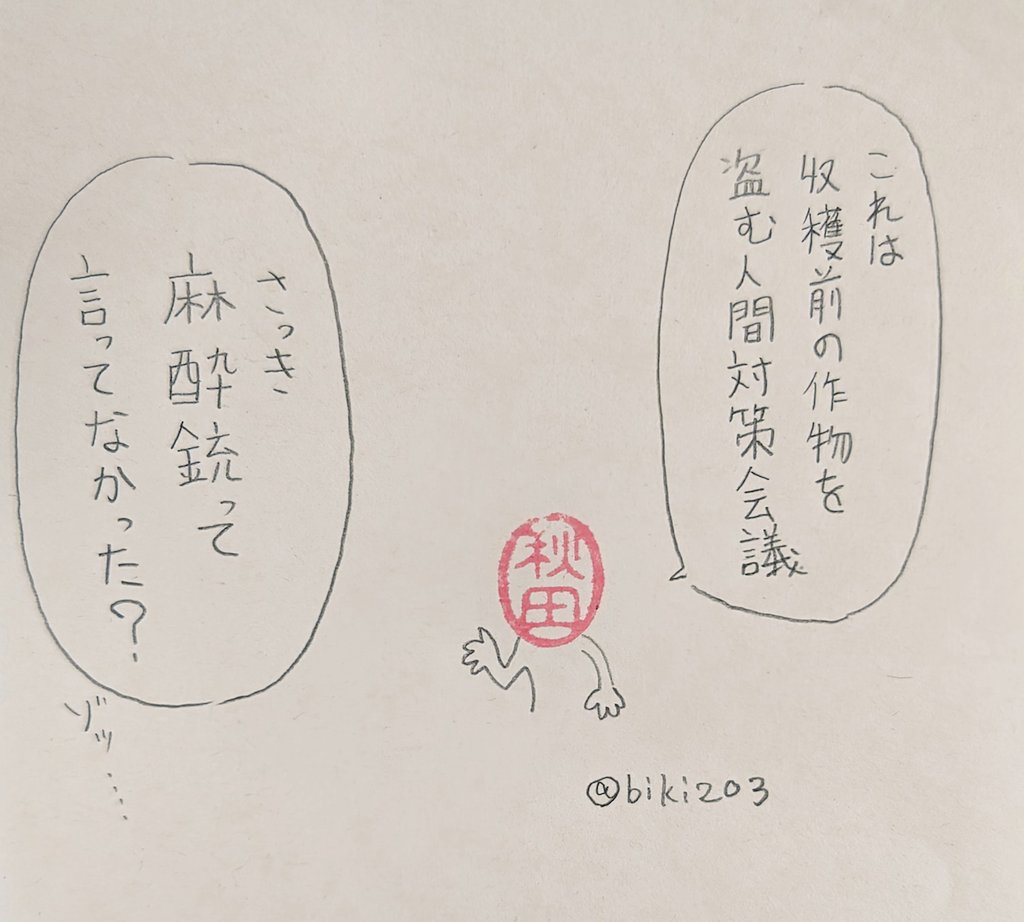 これは
収穫前の作物を
盗む人間対策会議
秋田
さっき
麻酔銃って
言ってなかった？
ゾッ・・・・
@biki203